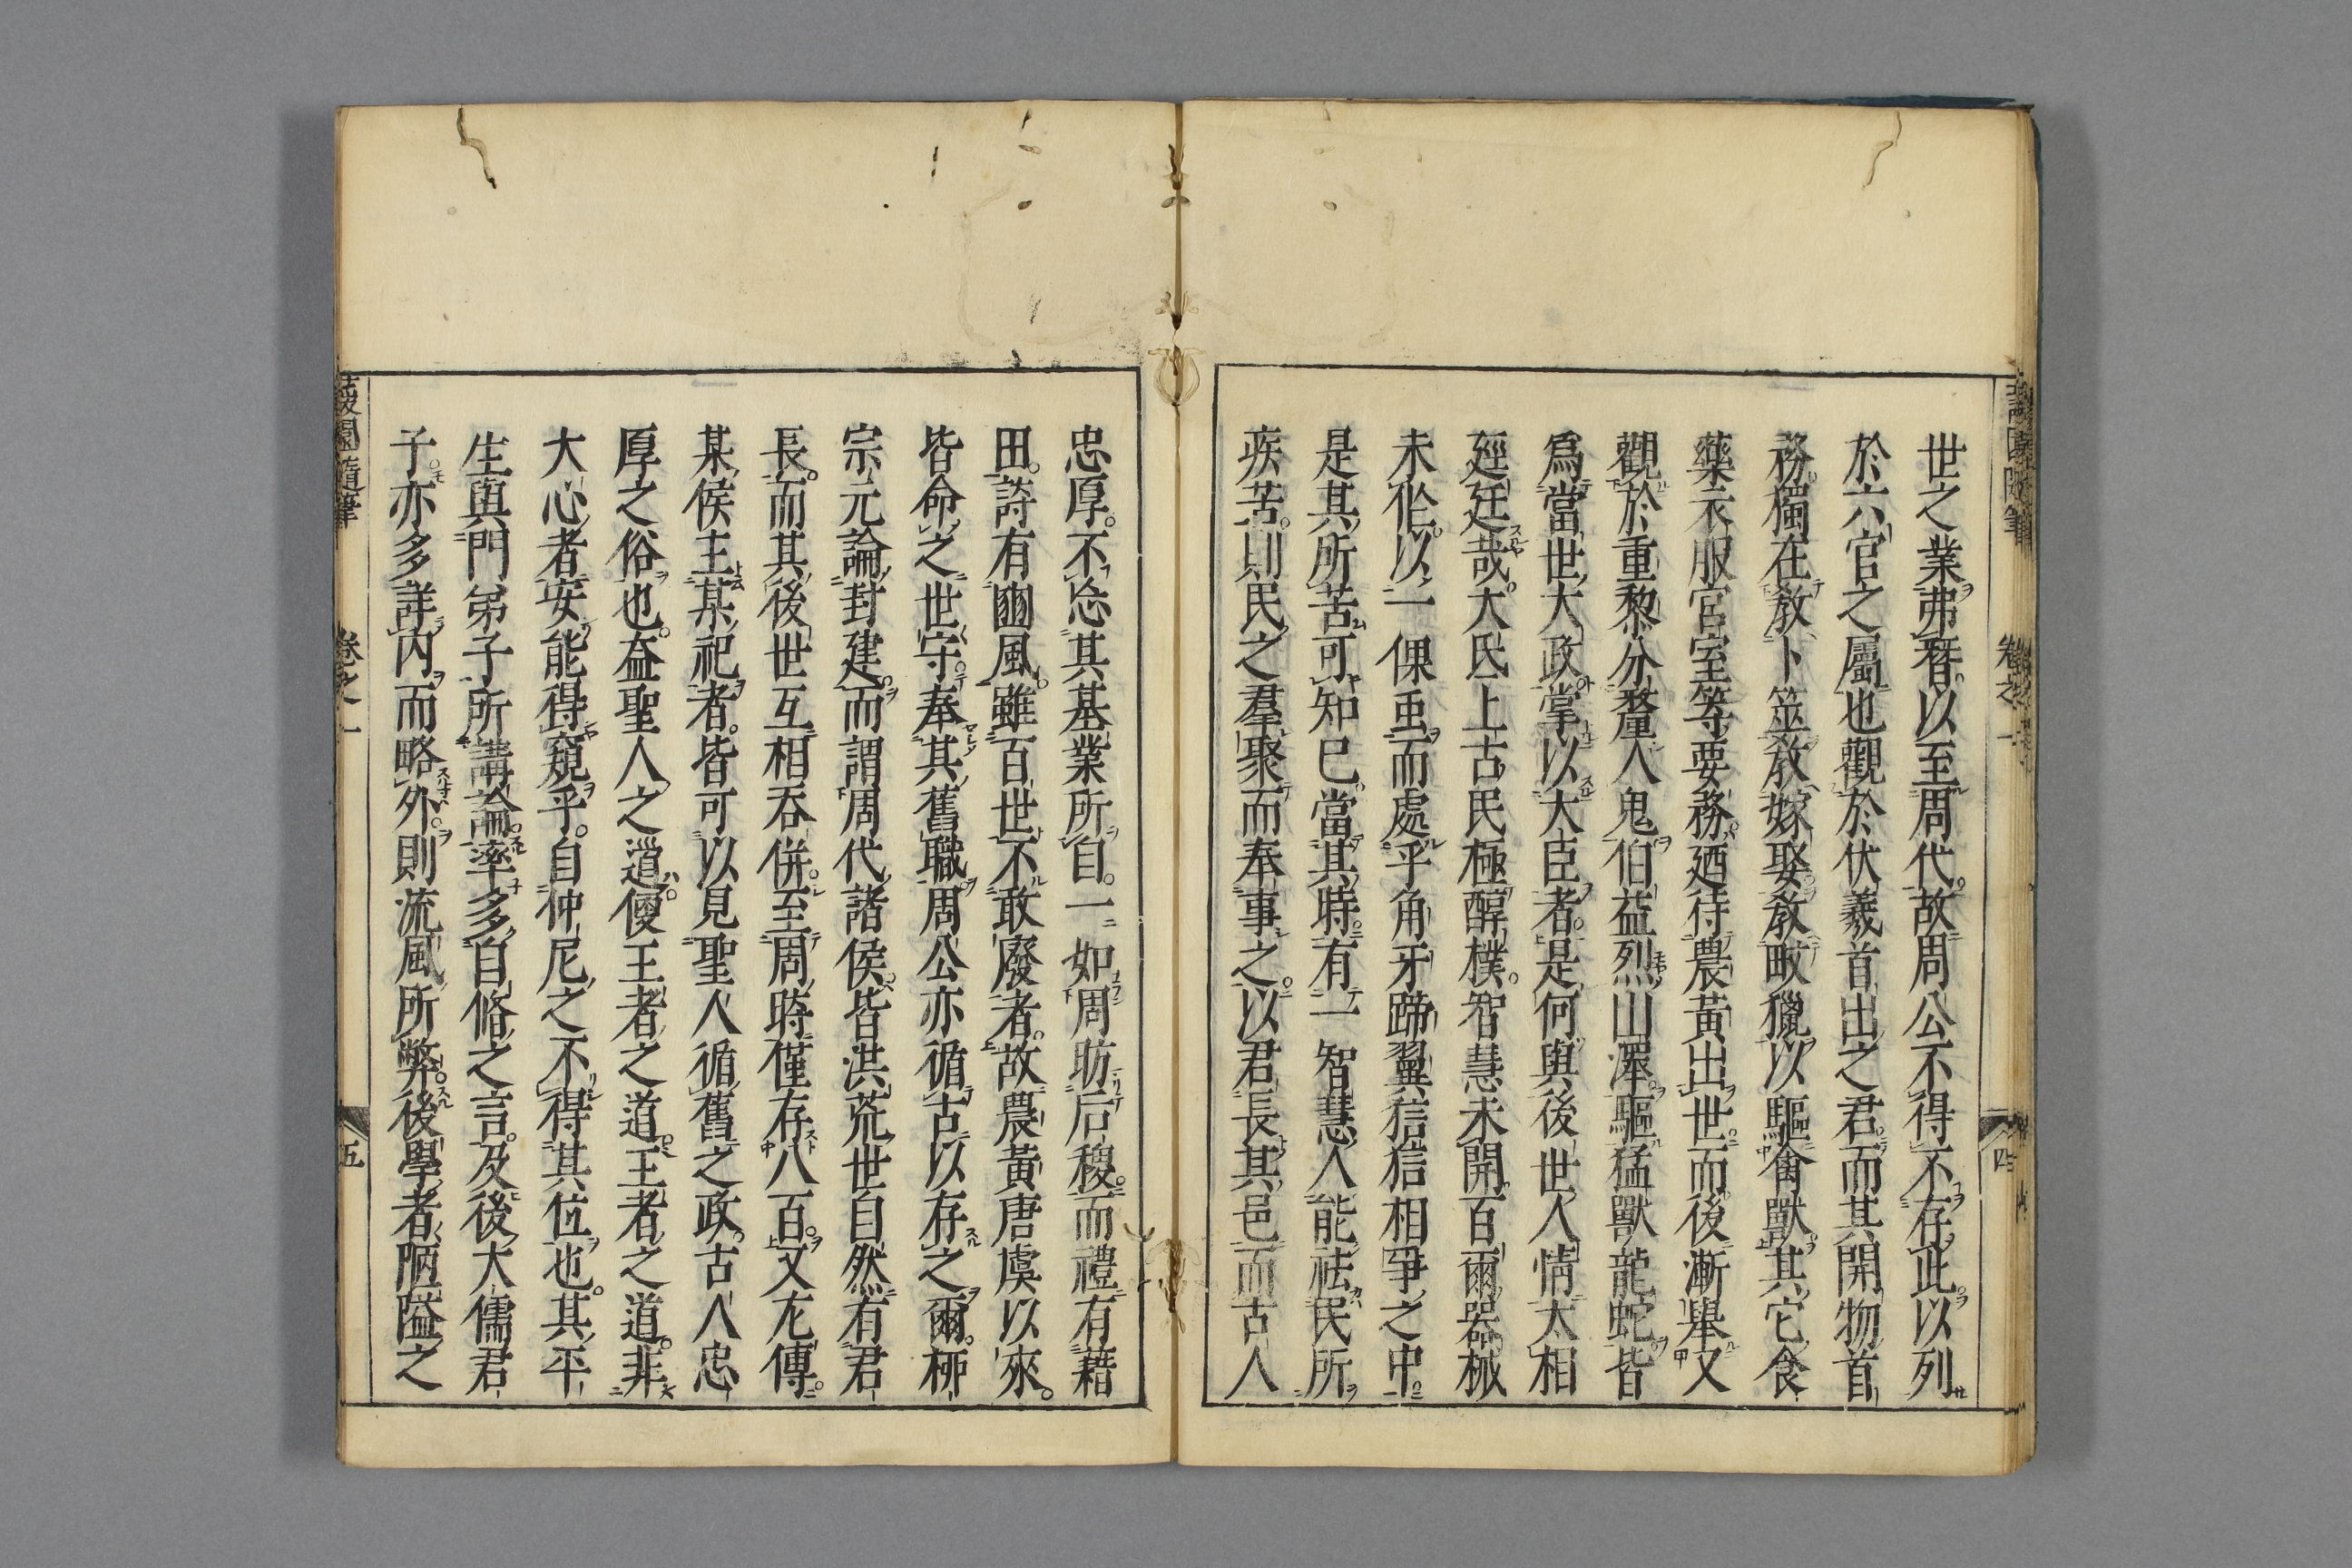 世之業弗替。以至周代。故周公不得不存此。以列
於六官之屬也觀於伏羲首出之君。而其開物首
務。獨在教卜筮教嫁娶。教畋獵以驅禽獸。其它食
藥衣服宮室等要務。廼待農黃出世。而後漸舉又
觀於重黎分釐人鬼伯益烈山澤。驅猛獸龍蛇皆
爲當世大政。掌以大臣者。是何與後世人情太相
逕廷哉。大氐上古民極醇樸。智慧未開。百爾器械
未作。以一倮虫而處乎角牙蹄翼狺狺相爭之中。
是其所苦可知已。當其時。有一智慧人能祛民所
疾苦。則民之羣聚而奉事之。以君長其邑而古人
忠厚。不忘其基業所自。一如周昉后稷。而禮有藉
田。詩有豳風。雖百世不敢廢者。故農黃唐虞以來。
皆命之世守。奉其舊職。周公亦循古以存之爾。柳
宗元論封建。而謂周代諸侯。皆洪荒世自然有君
長。而其後世互相吞併。至周時僅存八百。又尤傳
某侯主某祀者。皆可以見聖人循舊之政。古人忠
厚之俗也。益聖人之道。便王者之道。王者之道。非
大心者安能得窺乎。自仲尼之不得其位也。其平
生與門弟子所講論。率多自脩之言。及後大儒君
子。亦多詳內而略外。則流風所弊。後學者陋隘之
蘐園隨筆 卷之一 四
蘐園隨筆 卷之一 五